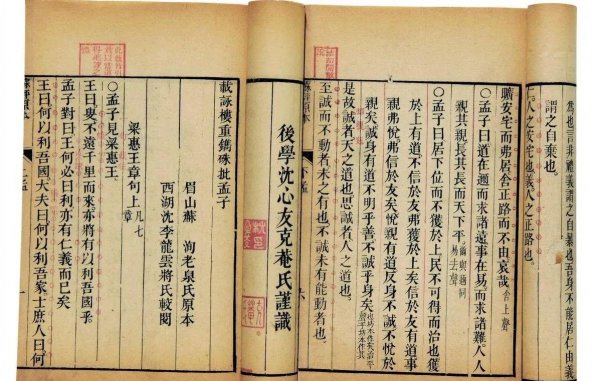 為也言非禮義謂之自暴也吾身不能居仁由義
謂之自棄也。
仁人之安宅也義人之正路也。
曠安宅而弗居舍正路而不由哀哉 舍上聲
○孟子曰道在邇而求諸遠事在易而求諸難人人
親其親長其長而天下平 易去聲
○孟子曰居下位而不獲於上民不可得而治也獲
於上有道不信於友弗獲於上矣信於友有道事
親弗悅弗信於友矣悅親有道反身不誠不悅於
親矣誠身有道不明乎善不誠乎身矣
是故誠者天之道也思誠者人之道也。
至誠而不動者未之有也不誠未有能動者也。
後學沈心友克菴氏謹識
載詠樓重鐫硃批孟子
眉山蘇 洵老泉氏原本
西湖沈李龍雲將氏較閱
梁惠王章句上 凡七章
○孟子見梁惠王
王曰叟不遠千里而來亦將有以利吾國乎。
孟子對曰王何必曰利亦有仁義而已矣
王曰何以利吾國大夫曰何以利吾家士庶人曰何